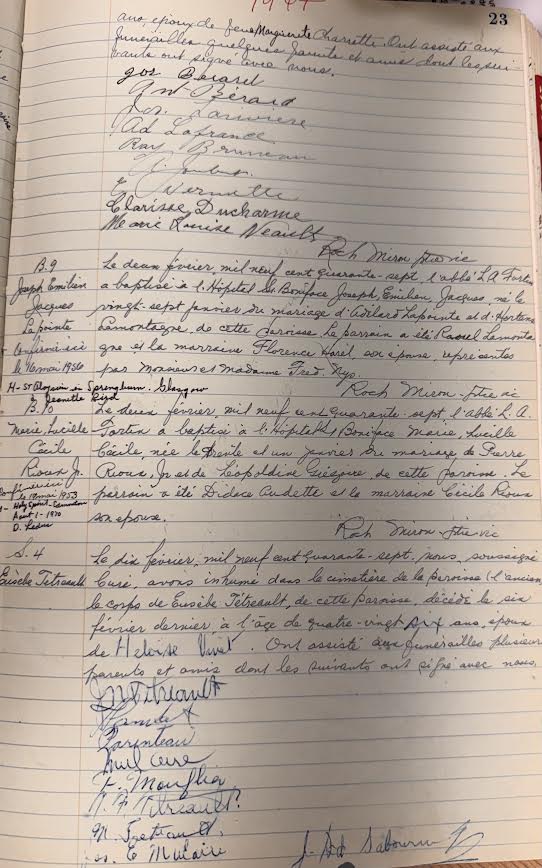 1947
23
ans, époux de feue Marguerite Charrette. Ont assisté aux
funérailles quelques parents et amis dont les sui
vants ont signé avec nous.
Jos Bérard
Ant Bérard
Jos. Larivière
Ad Lafrance
Ray Bruneau
Clarisse Ducharme
Marie Louise Neault
Roch Miron ptre vic
B. 9
Le deux février, mil neuf cent quarante-sept, l'abbé L.A. Fortin
Joseph Emilien
a baptisé à l'Hôpital St Boniface Joseph, Emilien, Jacques, né le
Jacques
vingt-sept janvier du mariage d'Adélard Lapointe et d'Hortense
Lapointe
Lamontagne, de cette paroisse. Le parrain a été Raoul Lamonta
Confirmé ici
gne et la marraine Florence Harel son épouse, représentés
le 16 mai 1956
par Monsieur et Madame Fred Nys.
in Springburn. Glasgow
Roch Miron ptre vic
B. 10
Le deux février, mil neuf cent quarante-sept l'abbé L. A.
Marie, Lucille
Fortin a baptisé à l'Hôpital St Boniface Marie, Lucille
Cécile
Cécile, née le trente et un janvier du mariage de Pierre
Rioux Jr.
Rioux, Jr et de Léopoldine Grégoire, de cette paroisse. Le
Confirmée ici
le 12 mai 1953
parrain a été Didace Audette et la marraine Cécile Rioux
Holy Spirit - Edmonton
Août 1 - 1970
son épouse.
D. Leduc
Roch Miron ptre vic
S. 4
Le dix février, mil neuf cent quarante-sept, nous, soussigné
Eusèbe Tétreault
Curé, avons inhumé dans le cimetière de la paroisse (l'ancien)
le corps de Eusèbe Tétreault, de cette paroisse, décédé le six
février dernier à l'âge de quatre-vingt six ans, époux
de Héloïse Vivet. Ont assisté aux funérailles plusieurs
parents et amis dont les suivants ont signé avec nous.
Tétreault
Parenteau
Tétreault
M. Tétreault
E Mulaire
Sabourin